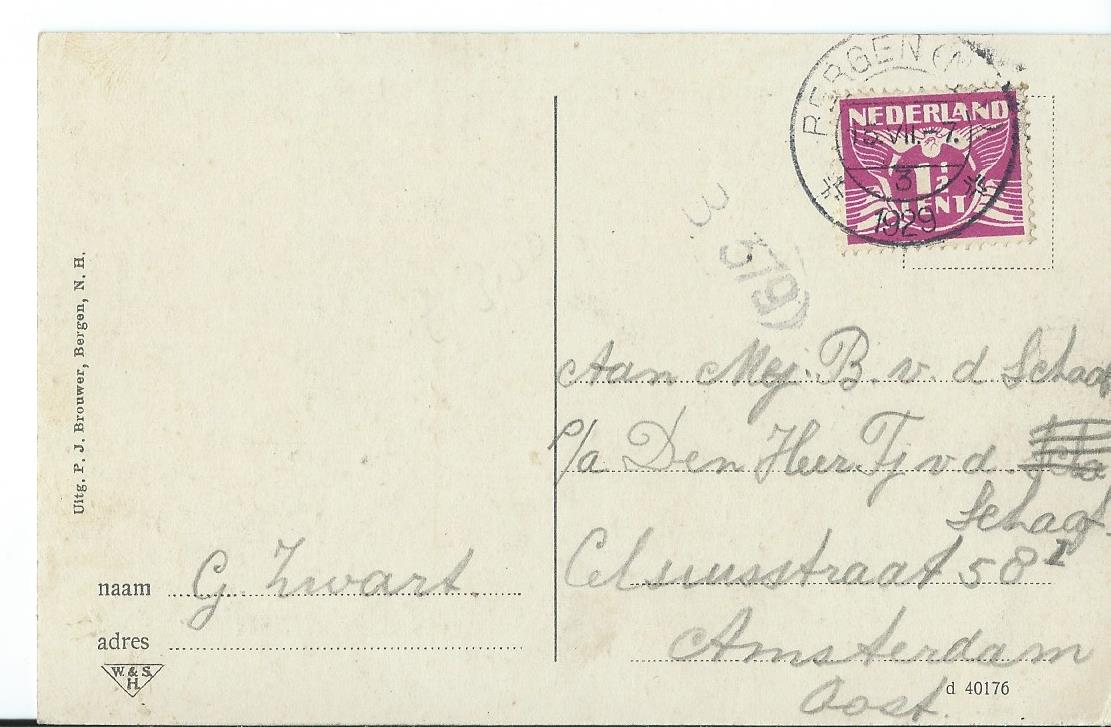 BERGEN (N
15 VII.-7.
3
1929
NEDERLAND
1½
CENT
3 579)
Uitg. P. J. Brouwer, Bergen, N. H.
Aan Mej. B. v. d Schaaf
p/a Den Heer Tj v d.
Schaaf
Celsiusstraat 58 I
Amsterdam
Oost.
naam G. Zwart.
adres
W. & S.
H.
d 40176